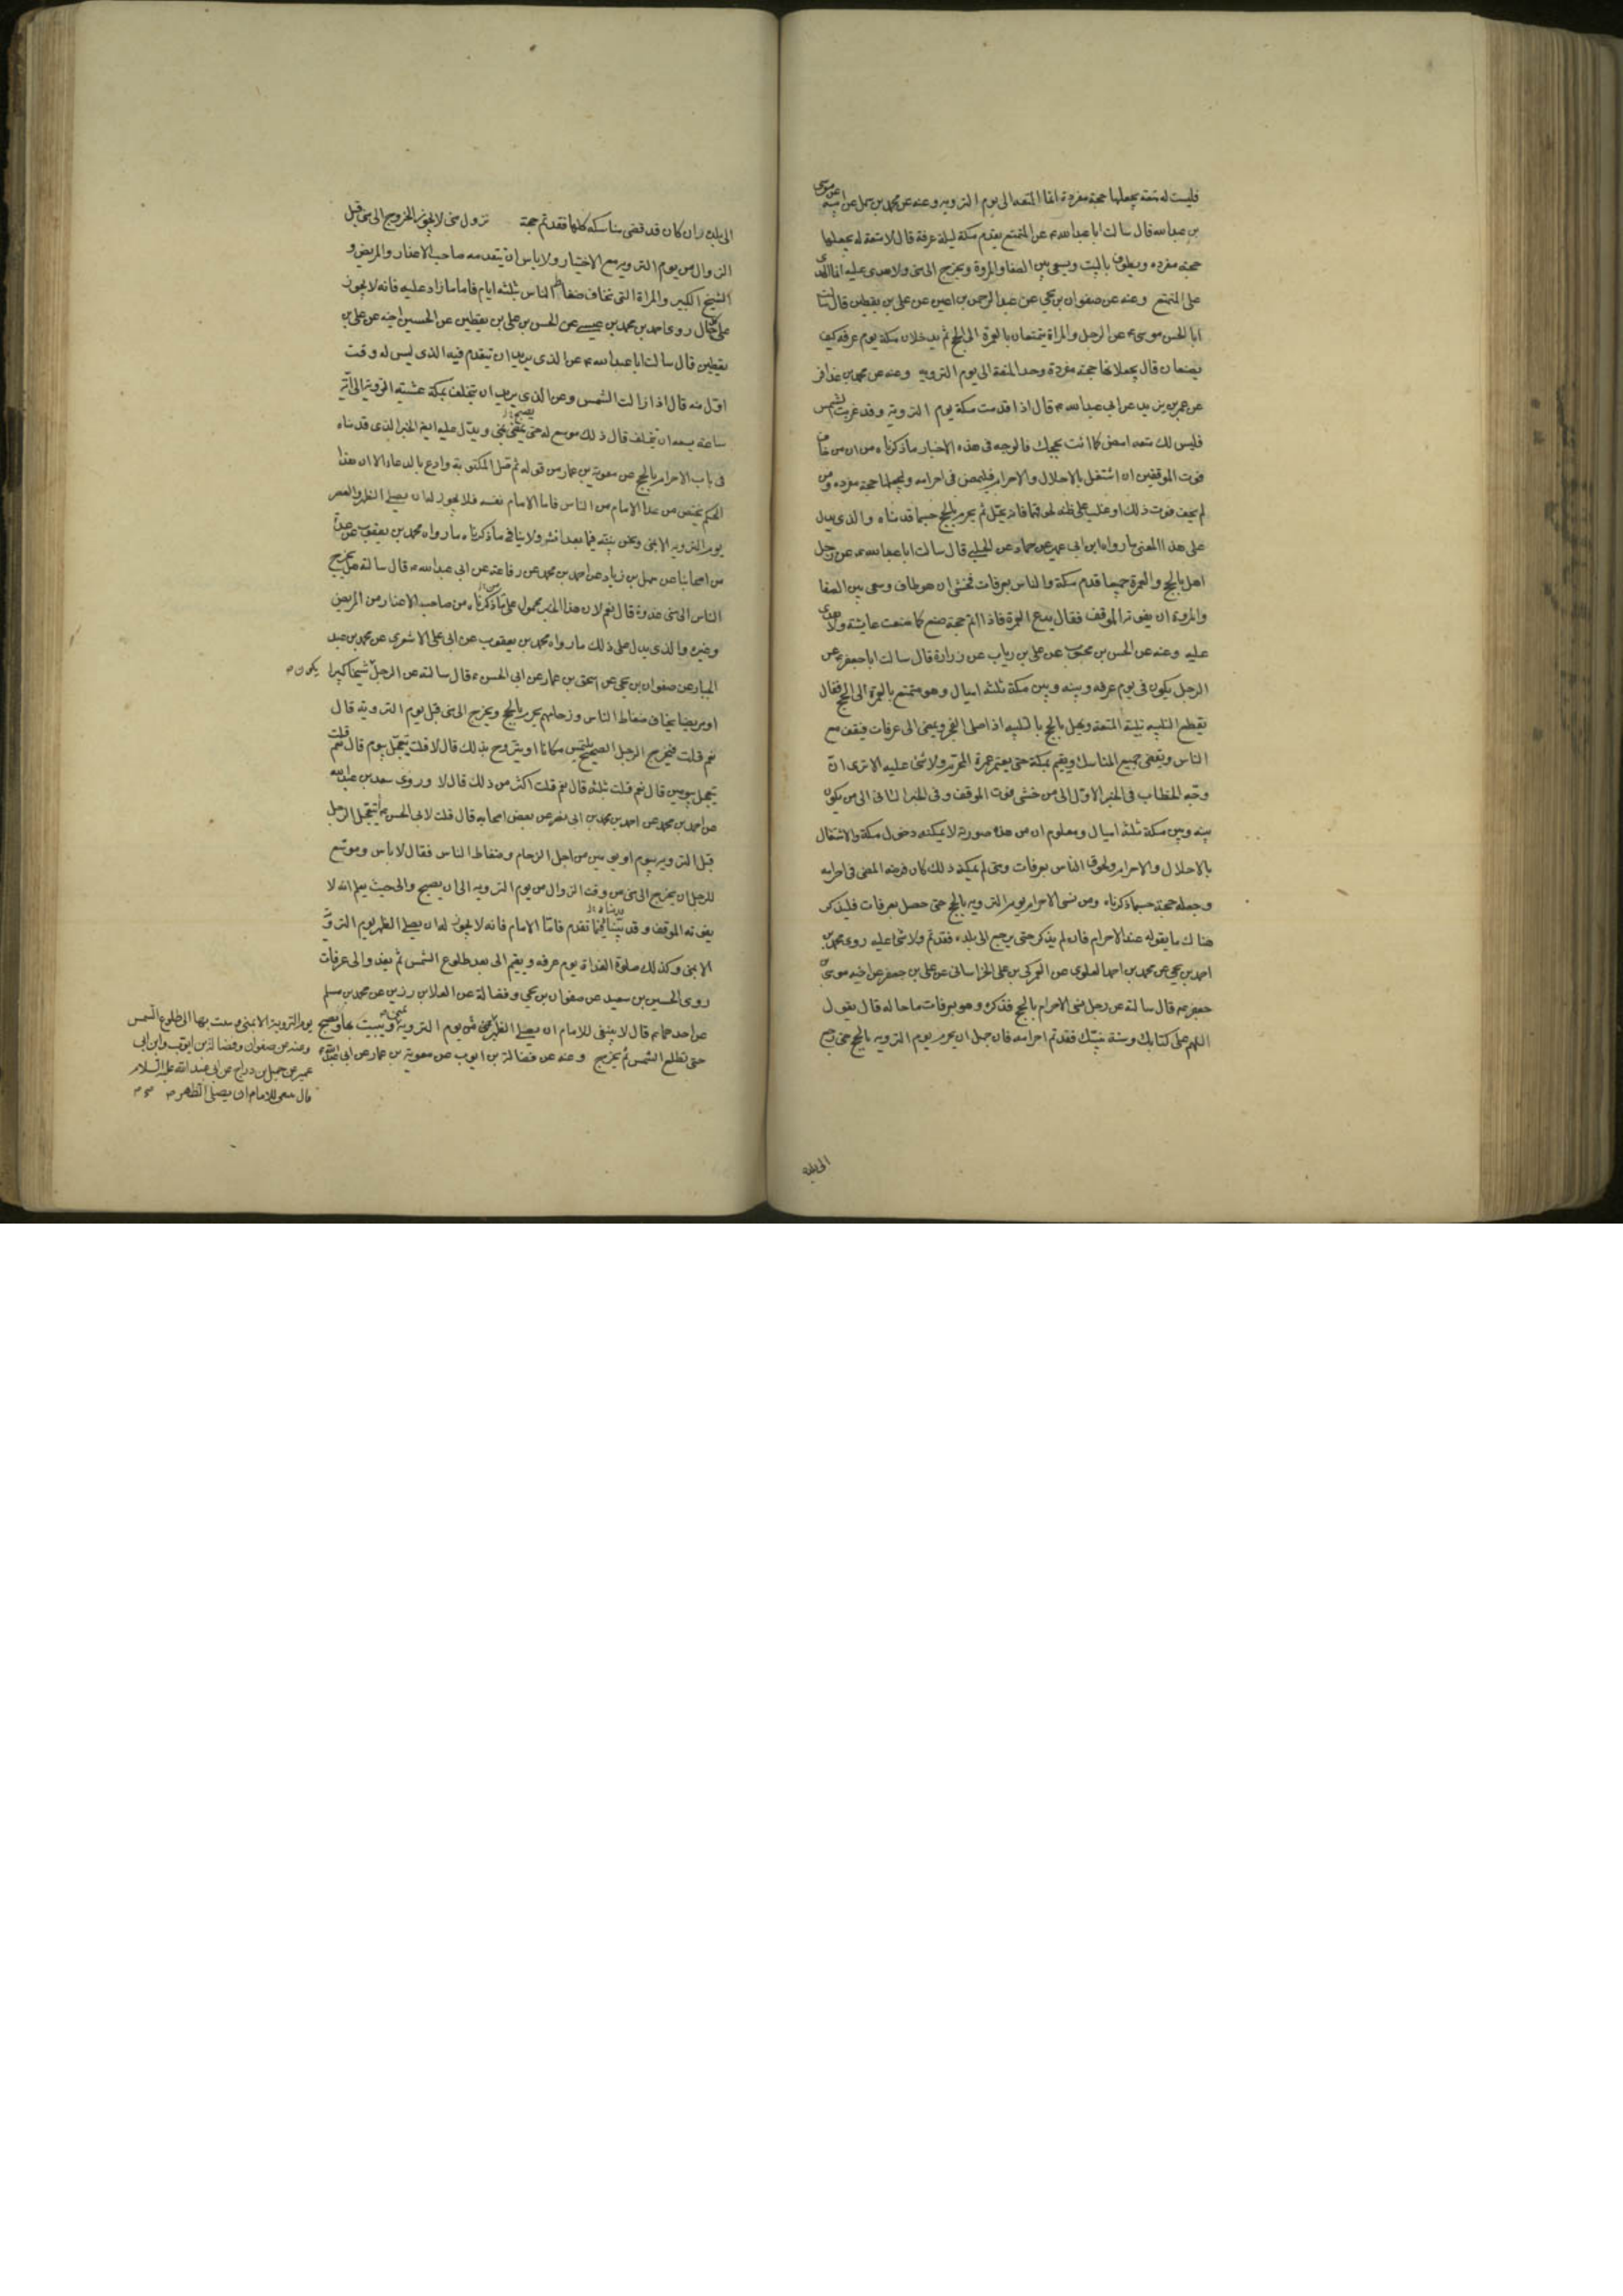 فليست له متعه يجعلها حجة مفردة انما المتعه الى يوم الترويه وعنه عن محمد بن سهل عن ابيه عن موسى
بن عبدالله قال سالت ابا عبدالله ع عن المتمتع يقدم مكة ليلة عرفة قال لا متعة له يجعلها
حجة مفرده ويطوف بالبيت ويسعى بين الصفا والمروة ويخرج الى منى ولا هدى عليه انما الهدى
على المتمتع وعنه عن صفوان بن يحيى عن عبدالرحمن بن اعين عن على بن يقطين قال سالت
ابا الحسن موسى ع عن الرجل والمراة يتمتعان بالعمرة الى الحج ثم يدخلان مكة يوم عرفه كيف
يصنعان قال يجعلانها حجة مفردة وحد المتعة الى يوم الترويه وعنه عن محمد بن عذافر
عن عمر بن يزيد عن ابى عبدالله ع قال اذا قدمت مكة يوم الترويه وقد غربت الشمس
فليس لك متعه امض كما انت بحجك فالوجه فى هذه الاخبار ما ذكرناه من ان من خاف
فوت الموقفين ان اشتغل بالاحلال والاحرام فليمض فى احرامه ويجعلها حجة مفرده ومن
لم يخف فوت ذلك او غلب على ظنه لحوقهما فانه يحل ثم يحرم بالحج حسبما قدمناه والذى يدل
على هذا المعنى ما رواه ابن ابى عمير عن حماد عن الحلبى قال سالت ابا عبدالله ع عن رجل
اهل بالحج والعمرة جميعا قدم مكة والناس بعرفات فخشى ان هو طاف وسعى بين الصفا
والمروة ان يفوته الموقف فقال يدع العمرة فاذا اتم حجه صنع كما صنعت عايشة ولا هدى
عليه وعنه عن الحسن بن محبوب عن على بن رياب عن زرارة قال سالت ابا جعفر ع عن
الرجل يكون فى يوم عرفه وبينه وبين مكة ثلثه اميال وهو متمتع بالعمرة الى الحج فقال
يقطع التلبيه تلبية المتعة ويهل بالحج بالتلبيه اذا صلى الفجر ويمضى الى عرفات فيقف مع
الناس ويقضى جميع المناسك ويقيم بمكة حتى يعتمر عمرة المحرم ولا شئ عليه الا ترى ان
وجه الخطاب فى الخبر الاول الى من خشى فوت الموقف وفى الخبر الثانى الى من يكون
بينه وبين مكة ثلثه اميال ومعلوم ان من هذه صورته لا يمكنه دخول مكة والاشتغال
بالاحلال والاحرام ولحوق الناس بعرفات ومتى لم يمكنه ذلك كان فرضه المضى فى احرامه
وجعله حجة حسبما ذكرناه ومن نسى الاحرام يوم الترويه بالحج حتى حصل بعرفات فليذكر
هناك ما يقوله عند الاحرام فان لم يذكر حتى يرجع الى بلده فقد تم ولا شئ عليه روى محمد بن
احمد بن يحيى عن محمد بن احمد العلوى عن العمركى بن على الخراسانى عن على بن جعفر عن اخيه موسى بن
جعفر ع قال سالته عن رجل نسى الاحرام بالحج فذكره وهو بعرفات ما حاله قال يقول
اللهم على كتابك وسنة نبيك فقد تم احرامه فان جهل ان يحرم يوم الترويه بالحج حتى رجع
الى بلده
الى بلده ان كان قد قضى مناسكه كلها فقد تم حجة نزول منى لا يجوز الخروج الى منى قبل
الزوال من يوم الترويه مع الاختيار ولا باس ان يتقدمه صاحب الاعذار والمريض و
الشيخ الكبير والمراة التى تخاف ضغاط الناس بثلثه ايام فاما ما زاد عليه فانه لا يجوز
على كل حال روى احمد بن محمد بن عيسى عن الحسن بن على بن يقطين عن الحسين اخيه عن على بن
يقطين قال سالت ابا عبدالله ع عن الذى يريد ان يتقدم فيه الذى ليس له وقت
اول منه قال اذا زالت الشمس وعن الذى يريد ان يتخلف بمكة عشية التروية الى اية
ساعة يسعه ان يتخلف قال ذلك موسع له حتى يصبح بمنى ويدل عليه ايض الخبر الذى قدمناه
فى باب الاحرام بالحج عن معوية بن عمار من قوله ثم صل المكتوبة وادع بالدعاء الا ان هذا
الحكم يختص من عدا الامام من الناس فاما الامام نفسه فلا يجوز له ان يصلى الظهر والعصر
يوم الترويه الا بمنى ونحن نبينه فيما بعد انشء ولا ينافى ما ذكرناه ما رواه محمد بن يعقوب عن عدة
من اصحابنا عن سهل بن زياد عن احمد بن محمد عن رفاعة عن ابى عبدالله ع قال سالته هل يخرج
الناس الى منى غدوة قال نعم لان هذا الخبر محمول على ما ذكرناه من صاحب الاعذار من المريض
وغيره والذى يدل على ذلك ما رواه محمد بن يعقوب عن ابى على الاشعرى عن محمد بن عبد
الجبار عن صفوان بن يحيى عن اسحق بن عمار عن ابى الحسن ع قال سالته عن الرجل شيخا كبيرا
يكون
او مريضا يخاف ضغاط الناس وزحامهم يحرم بالحج ويخرج الى منى قبل يوم الترويه قال
نعم قلت فيخرج الرجل الصحيح يلتمس مكانا او يتروح بذلك قال لا قلت يتعجل بيوم قال نعم قلت
يتعجل بيومين قال نعم قلت ثلثه قال نعم قلت اكثر من ذلك قال لا وروى سعد بن عبدالله
عن احمد بن محمد عن احمد بن محمد بن ابى نصر عن بعض اصحابه قال قلت لابى الحسن ع يتعجل الرجل
قبل الترويه بيوم او يومين من اجل الزحام وضغاط الناس فقال لا باس وموسع
للرجل ان يخرج الى منى من وقت الزوال من يوم الترويه الى ان يصبح والى حيث يعلم انه لا
يفوته الموقف وقد بينا فيما تقدم فاما الامام فانه لا يجوز له ان يصلى الظهر يوم التروية
الا بمنى وكذلك صلوة الغداة يوم عرفه ويقيم الى بعد طلوع الشمس ثم يغدو الى عرفات
روى الحسين بن سعيد عن صفوان بن يحيى وفضالة عن العلا بن رزين عن محمد بن مسلم
عن احدهما ع قال لا ينبغى للامام ان يصلى الظهر الا بمنى يوم الترويه ويبيت بها ويصبح
حتى تطلع الشمس ثم يخرج وعنه عن فضالة بن ايوب عن معوية بن عمار عن ابى عبدالله
يوم التروية الا بمنى وببيت بها الى طلوع الشمس
وعنه عن صفوان وفضالة بن ايوب وابن ابى
عمير عن جميل بن دراج عن ابى عبد الله عليه السلام
قال ينبغى للامام ان يصلى الظهر